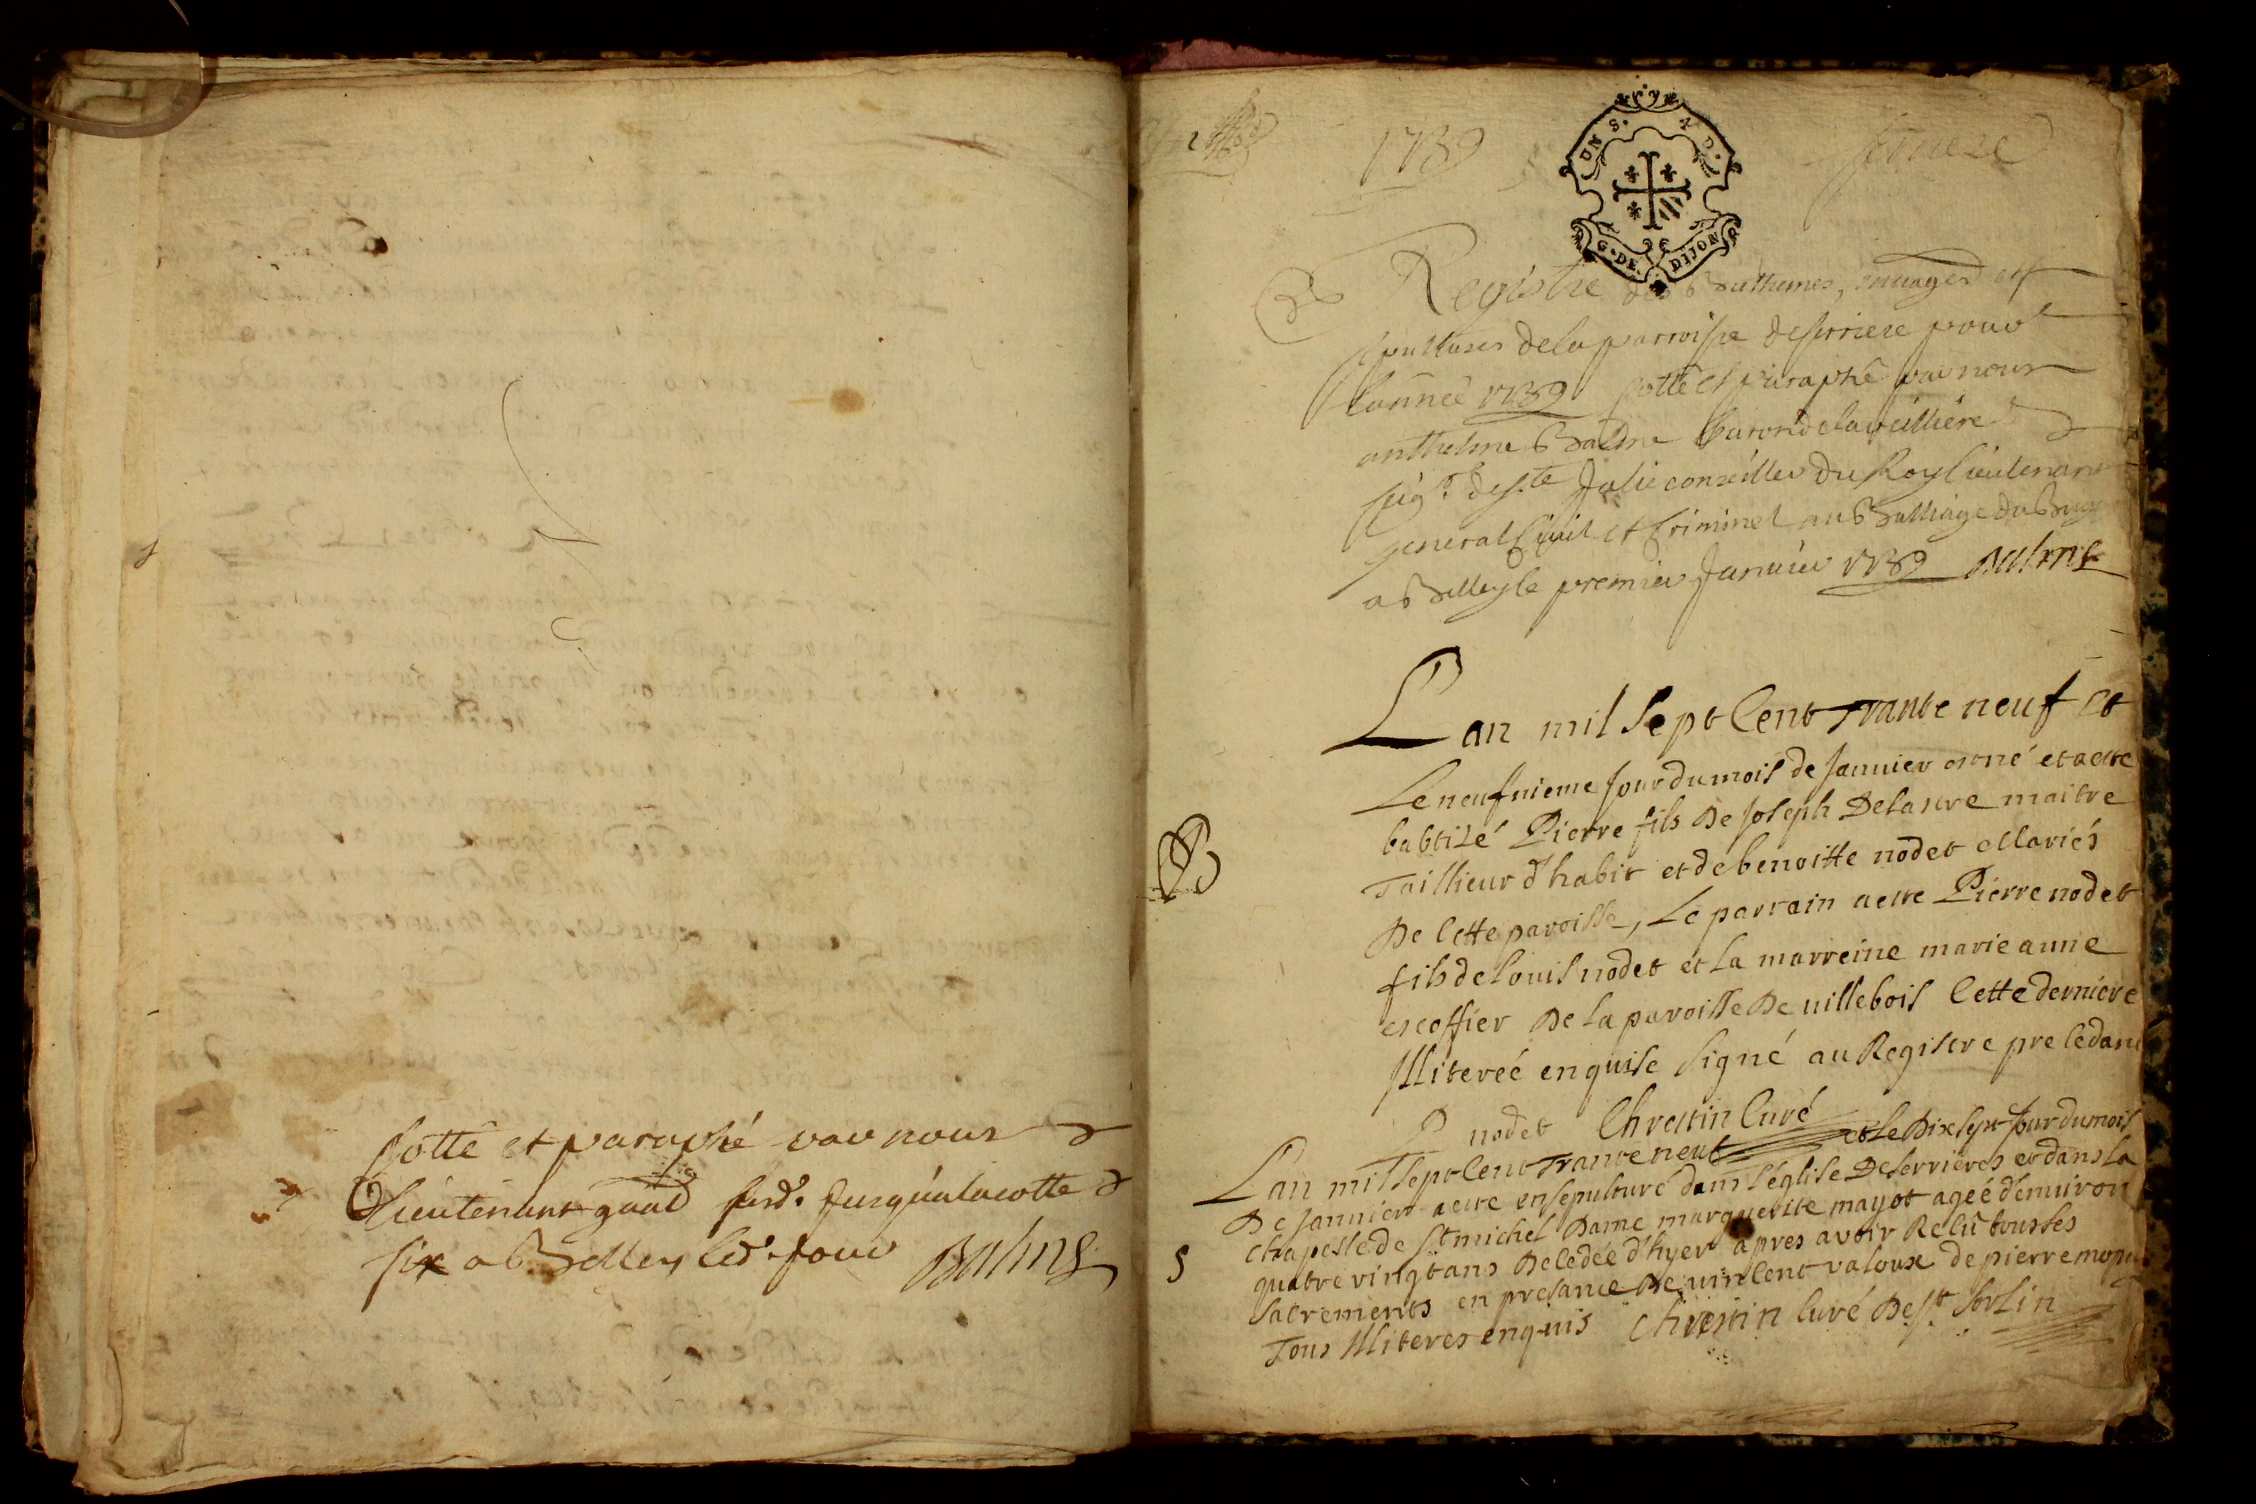 Cotté et paraphé par nous
Lieutenant gnal susd. jusqu'a la cotte
six a Belley led. jour Balme
1739
UN S. X D.
G. DE. DIJON
Registre des Bathemes, mariages et
sepultures de la parroisse de serriere pour
l'année 1739 Cotté et paraphé par nous
anthelme Balme baron de la veilliére
seigr. de ste Julie conseiller du Roy Lieutenant
general Civil et Criminel au Balliage du Bugey
a Belley le premier Janvier 1739 Balme
Lan mil sept cent trante neuf et
Le neufnieme jour du mois de Janvier est né et a etté
babtizé Pierre fils de Joseph Delastre maitre
Taillieur d'habit et de benoitte nodet Mariés
De Cette paroisse, Le parrain a etté Pierre nodet
fils de Louis nodet et La marreine marie anne
escoffier De La paroisse De villebois Cette derniere
Illiterée enquise signé au Registre precedant
P nodet Chrestin Curé
Lan mil sept cent trante neuf et le Dix sept jour du mois
De Janvier a etté ensepulturé dans l'église De serrieres et dans la
chapelle de st michel Dame marguerite mayot agéé d'environ
quatre vingt ans Decedée d'hyer apres avoir Reçû tous les
sacrements en presance De vincent valoux de pierre
Tous Illiteres enquis Chrestin Curé De st sorlin
B
S